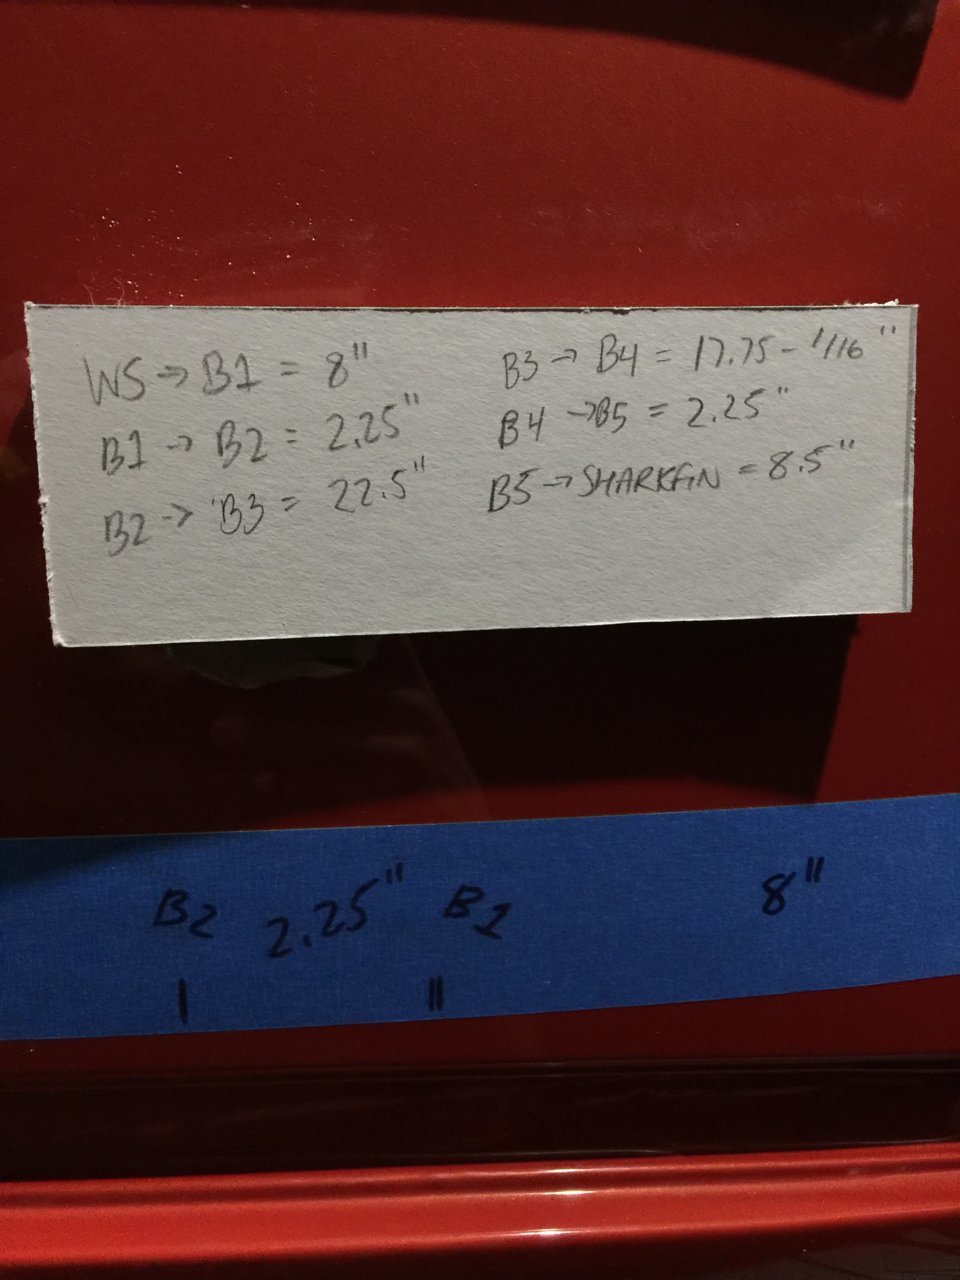 WS → B1 = 8"
B1 → B2 = 2.25"
B2 → B3 = 22.5"
B3 → B4 = 17.75 - 1/16"
B4 → B5 = 2.25"
B5 → SHARKFIN = 8.5"
B2 2.25" B1 8"